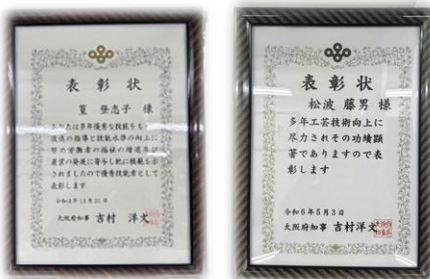 表彰状
篁 登志子 様
あなたは多年優秀な技能をもって
後進の指導と技能水準の向上に
努め労働者の福祉の増進及び
産業の発展に寄与し他に模範を示
されましたので優秀技能者として
表彰します
令和4年11月21日
大阪府知事 吉村 洋文
表彰状
松波 藤男 様
多年工芸技術向上に
尽力されその功績顕
著でありますので表
彰します
令和6年5月3日
大阪府知事 吉村洋文